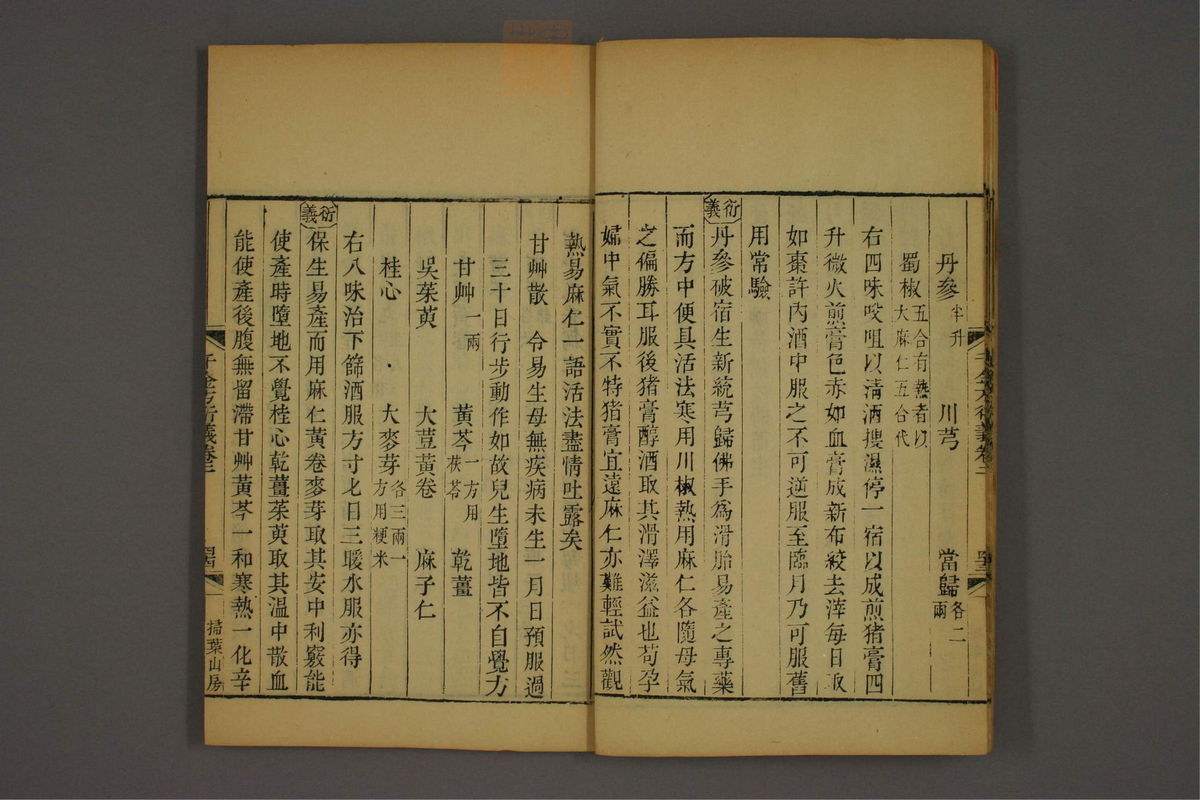 丹參半升　川芎　當歸各二兩
蜀椒五合有熱者以大麻仁五合代
右四味㕮咀以清酒搜濕停一宿以成煎猪膏四
升微火煎膏色赤如血膏成新布絞去滓每日取
如棗許內酒中服之不可逆服至臨月乃可服舊
用常驗
衍義
丹參破宿生新統芎歸佛手為滑胎易產之專藥
而方中便具活法寒用川椒熱用麻仁各隨母氣
之偏勝耳服後猪膏醇酒取其滑澤滋益也苟孕
婦中氣不實不特猪膏宜遠麻仁亦難輕試然觀
千金方衍義卷二
熱易麻仁一語活法盡情吐露矣
甘艸散　令易生母無疾病未生一月日預服過
三十日行步動作如故兒生墮地皆不自覺方
甘艸一兩　黃芩一方用茯苓　乾薑
吳茱萸　大荳黃卷　麻子仁
桂心　大麥芽各三兩一方用粳米
右八味治下篩酒服方寸匕日三暖水服亦得
衍義
保生易產而用麻仁黃卷麥芽取其安中利竅能
使產時墮地不覺桂心乾薑茱萸取其溫中散血
能使產後腹無留滯甘艸黃芩一和寒熱一化辛
千金方衍義卷二
掃葉山房